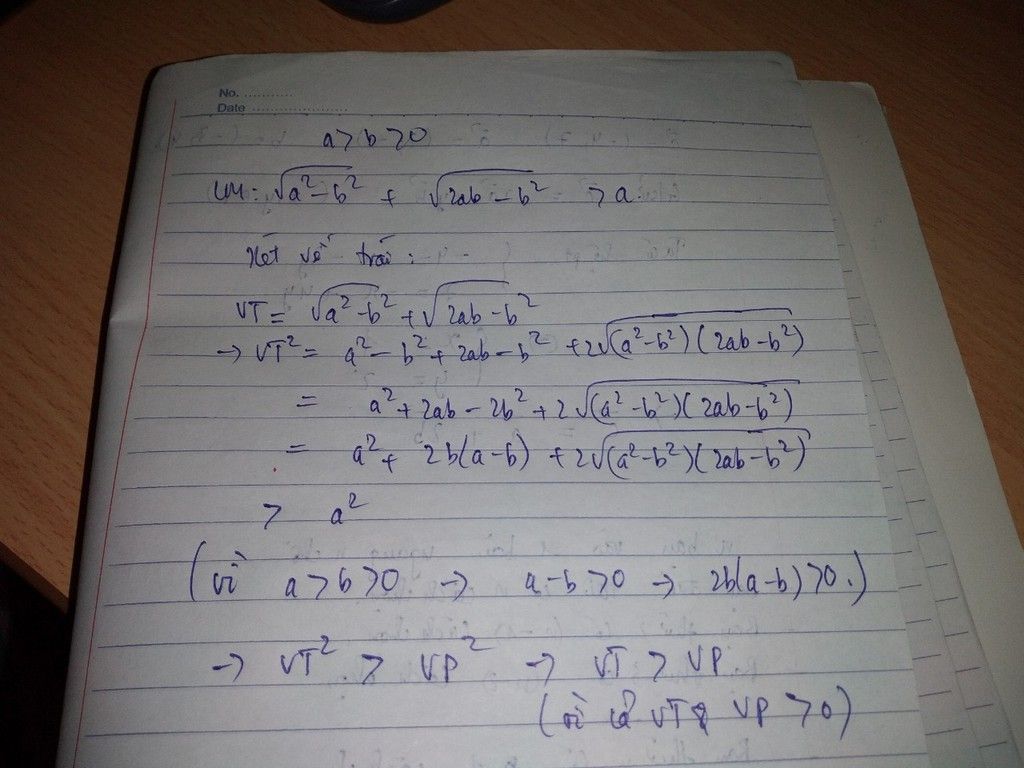 No. ...........
Date ......................
a > b > 0
CM: √(a² - b²) + √(2ab - b²) > a.
Xét vế trái:
VT = √(a² - b²) + √(2ab - b²)
→ VT² = a² - b² + 2ab - b² + 2√((a² - b²)(2ab - b²))
= a² + 2ab - 2b² + 2√((a² - b²)(2ab - b²))
= a² + 2b(a - b) + 2√((a² - b²)(2ab - b²))
> a²
(vì a > b > 0 → a - b > 0 → 2b(a - b) > 0.)
→ VT² > VP² → VT > VP
(vì cả VT & VP > 0)